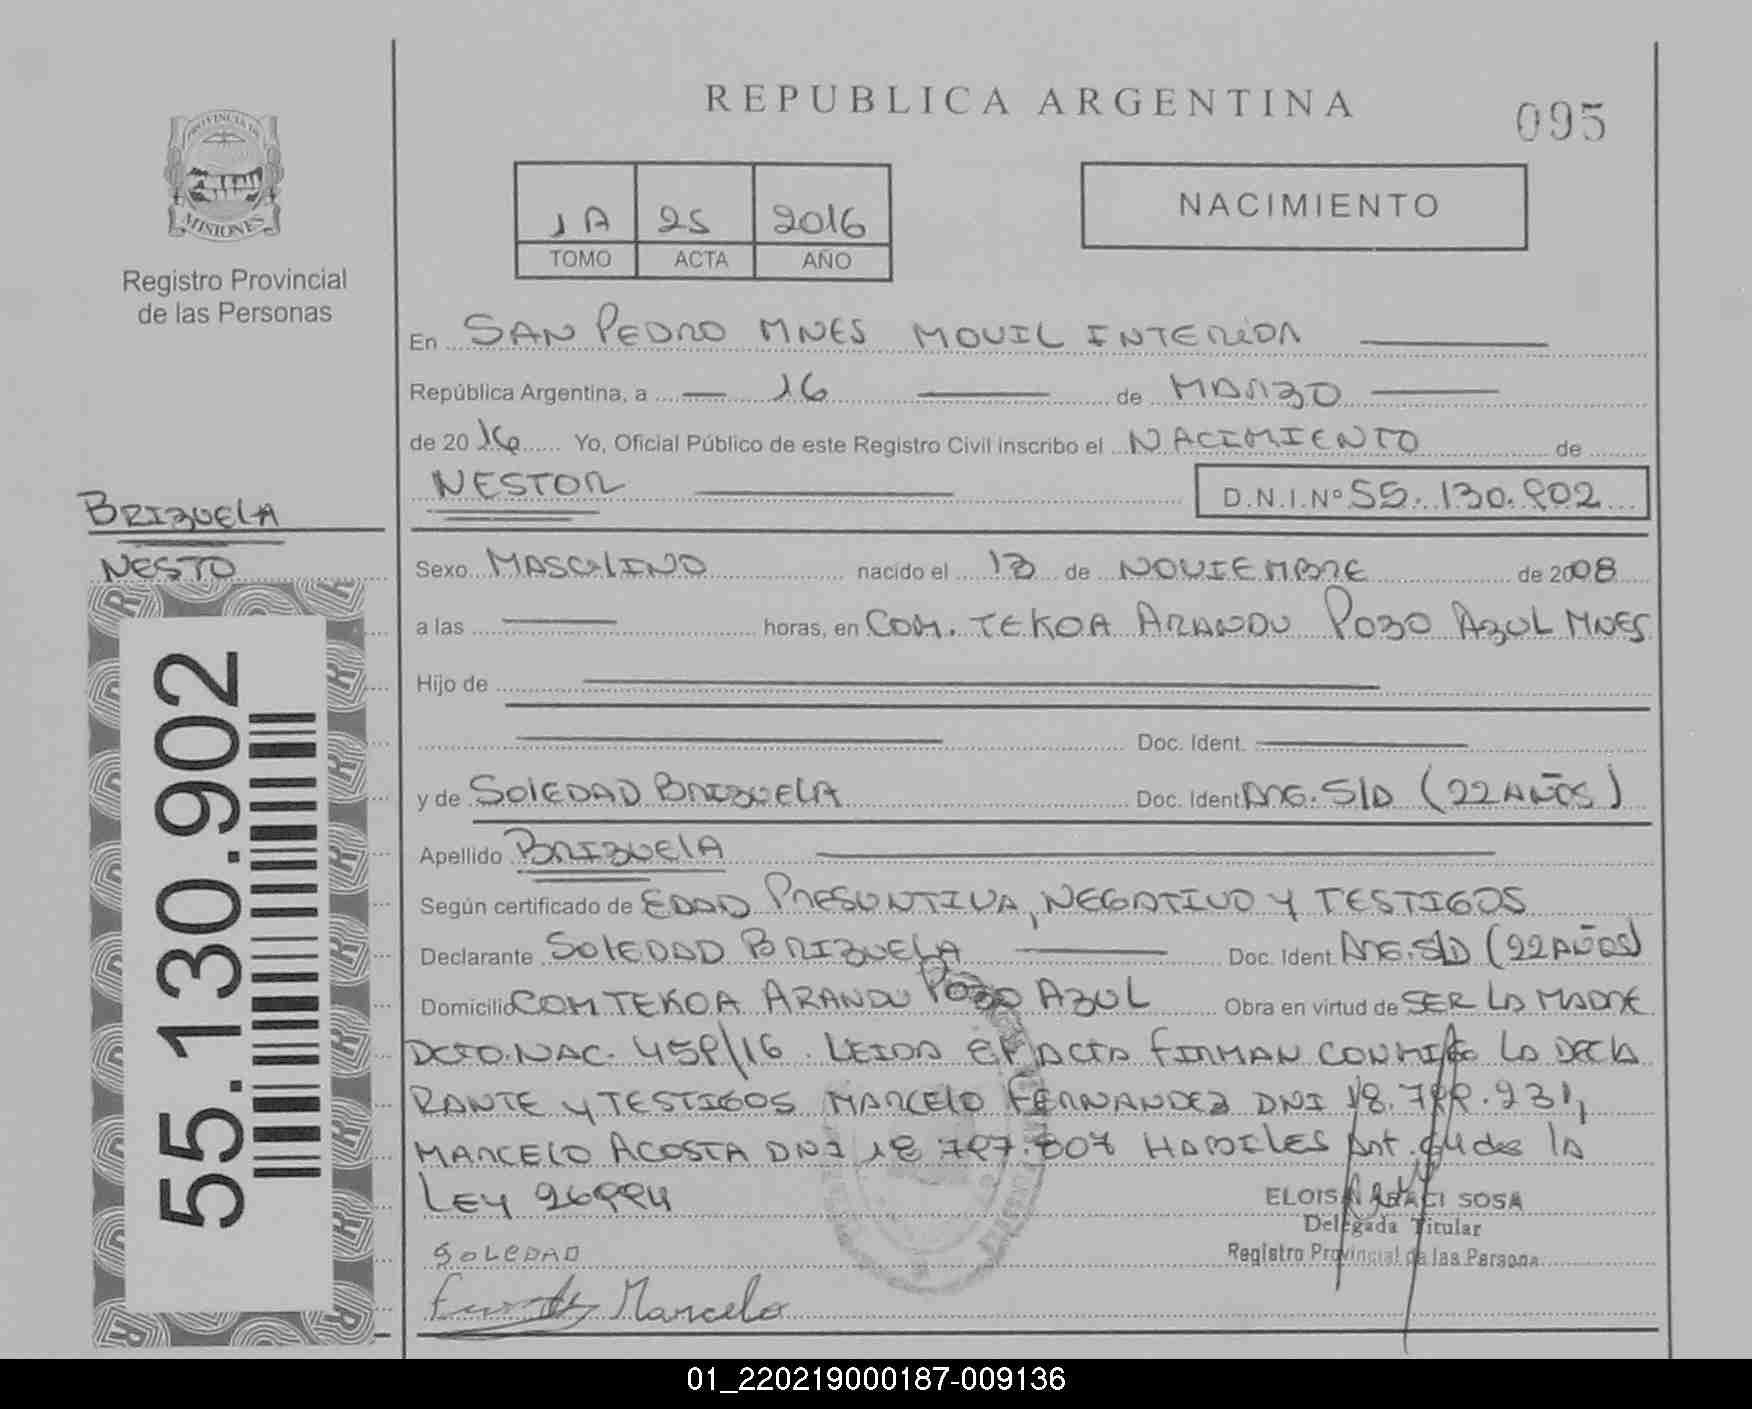 REPUBLICA ARGENTINA
095
PROVINCIA DE
MISIONES
Registro Provincial
de las Personas
1A 25 2016
TOMO ACTA AÑO
NACIMIENTO
En SAN PEDRO MNES MOVIL INTERIOR
República Argentina, a 16 de MARZO
de 2016 Yo, Oficial Público de este Registro Civil inscribo el NACIMIENTO de
NESTOR D.N.I.Nº 55.130.902
BRIZUELA
NESTO
Sexo MASCULINO nacido el 13 de NOVIEMBRE de 2008
a las horas, en COM. TEKOA ARANDU POZO AZUL MNES
Hijo de
Doc. Ident.
y de SOLEDAD BRIZUELA Doc. Ident. ARG. S/D (22 AÑOS)
Apellido BRIZUELA
Según certificado de EDAD PRESUNTIVA, NEGATIVO Y TESTIGOS
Declarante SOLEDAD BRIZUELA Doc. Ident. ARG. S/D (22 AÑOS)
Domicilio COM TEKOA ARANDU POZO AZUL Obra en virtud de SER LA MADRE
DCTO. NAC. 459/16. LEIDA EL ACTA FIRMAN CONMIGO LA DECLA
RANTE Y TESTIGOS MARCELO FERNANDEZ DNI 18.799.231,
MARCELO ACOSTA DNI 18.797.807 HABILES Art. 64 de la
LEY 26994
ELOISA ARACI SOSA
Delegada Titular
Registro Provincial de las Persona
SOLEDAD
Marcelo
55.130.902
01_220219000187-009136